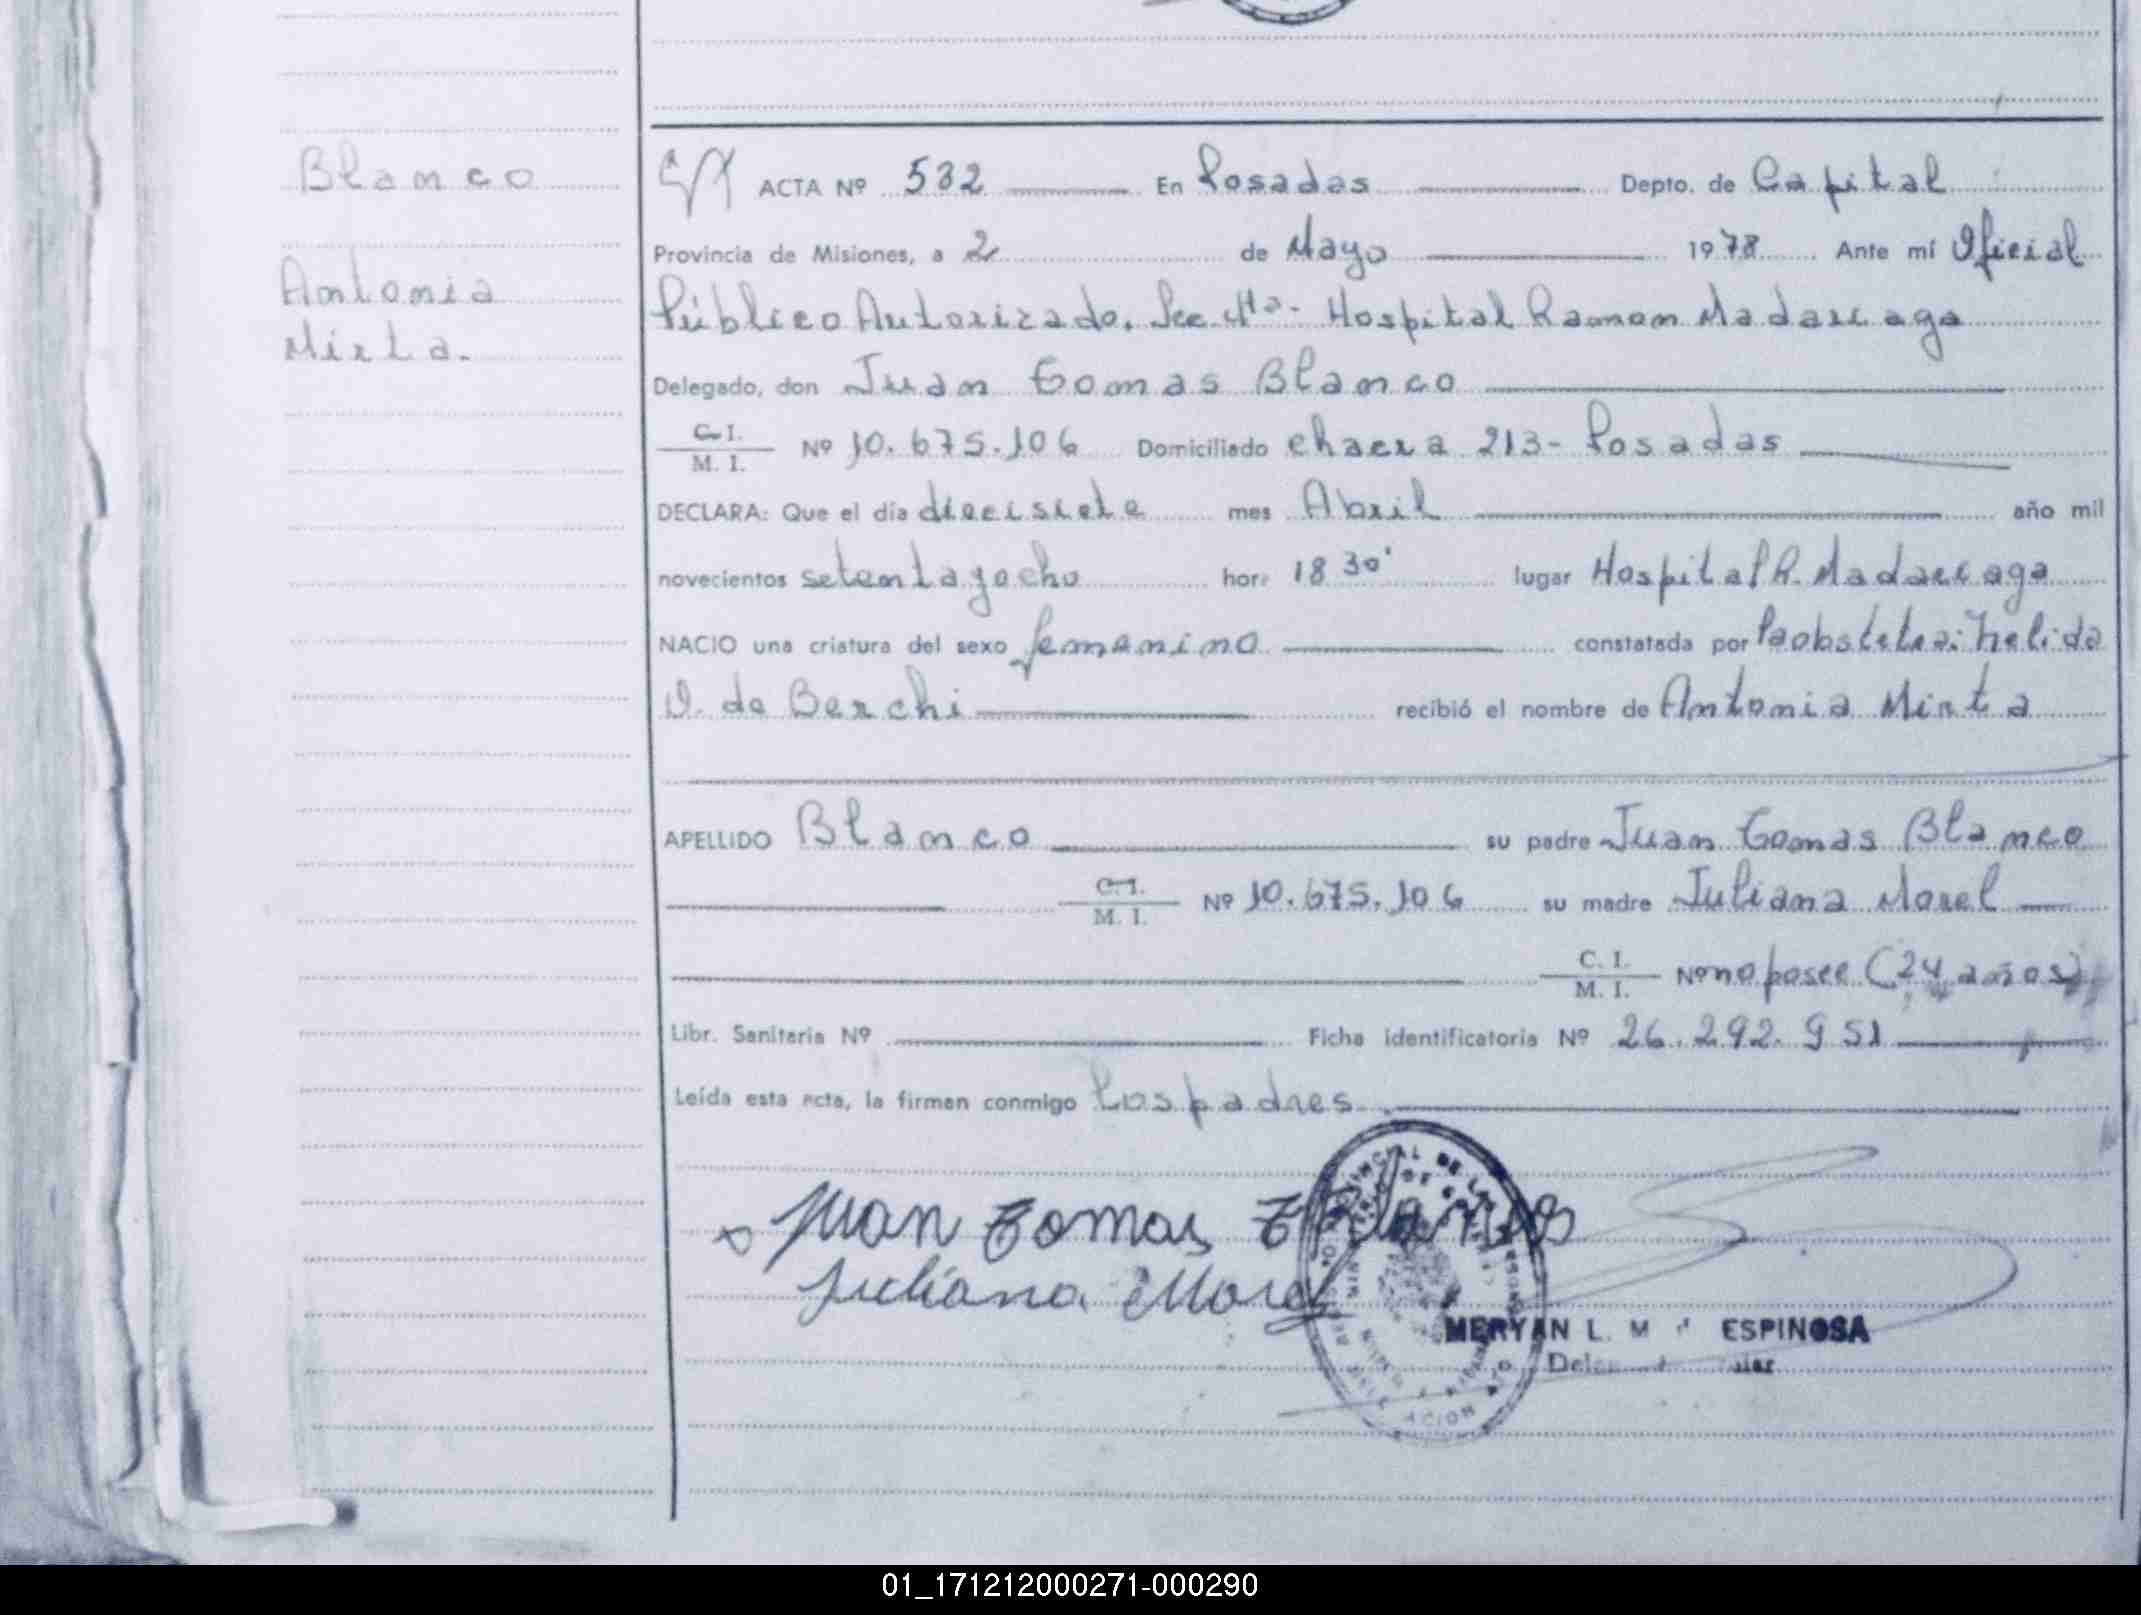 Blanco
Antonia
Mirta.
ACTA Nº 532 En Posadas Depto. de Capital
Provincia de Misiones, a 2 de Mayo 1978 Ante mí Oficial
Público Autorizado. Sec. 4ta- Hospital Ramon Madariaga
Delegado, don Juan Tomas Blanco
C.I. / M. I. Nº 10.675.106 Domiciliado chacra 213- Posadas
DECLARA: Que el día diecisiete mes Abril año mil
novecientos setentayocho hora 18 30' lugar Hospital R. Madariaga
NACIO una criatura del sexo femenino constatada por Paobstetra: Nelida
de Berchi recibió el nombre de Antonia Mirta
APELLIDO Blanco su padre Juan Tomas Blanco
C.I. / M. I. Nº 10.675.106 su madre Juliana Morel
C. I. / M. I. Nº no posee (24 años)
Libr. Sanitaria Nº Ficha identificatoria Nº 26.292.951
Leída esta acta, la firman conmigo los padres
Juan Tomas Blanco
Juliana Morel
MERYAN L. ESPINOSA
01_171212000271-000290